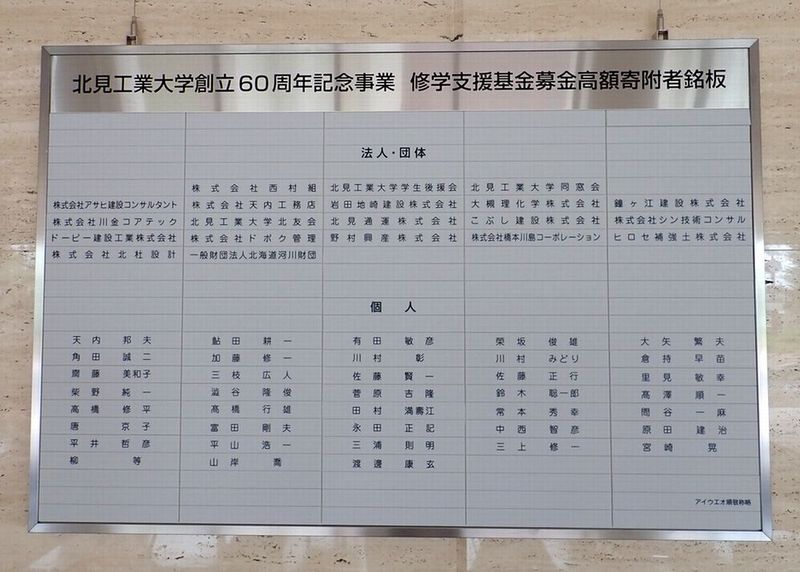 北見工業大学創立60周年記念事業 修学支援基金募金高額寄附者銘板
法人・団体
株式会社西村組 北見工業大学学生後援会 北見工業大学同窓会
株式会社アサヒ建設コンサルタント 株式会社天内工務店 岩田地崎建設株式会社 大槻理化学株式会社 鐘ヶ江建設株式会社
株式会社川金コアテック 北見工業大学北友会 北見通運株式会社 こぶし建設株式会社 株式会社シン技術コンサル
ドーピー建設工業株式会社 株式会社ドボク管理 野村興産株式会社 株式会社橋本川島コーポレーション ヒロセ補強土株式会社
株式会社北杜設計 一般財団法人北海道河川財団
個人
天内邦夫 鮎田耕一 有田敏彦 榮坂俊雄 大矢繁夫
角田誠二 加藤修一 川村彰 川村みどり 倉持早苗
齋藤美和子 三枝広人 佐藤賢一 佐藤正行 里見敏幸
柴野純一 澁谷隆俊 菅原吉隆 鈴木聡一郎 髙澤順一
高橋修平 髙橋行雄 田村満壽江 常本秀幸 問谷一麻
唐京子 富田剛夫 永田正記 中西智彦 原田建治
平井哲彦 平山浩一 三浦則明 三上修一 宮崎晃
柳等 山岸喬 渡邊康玄
アイウエオ順敬称略